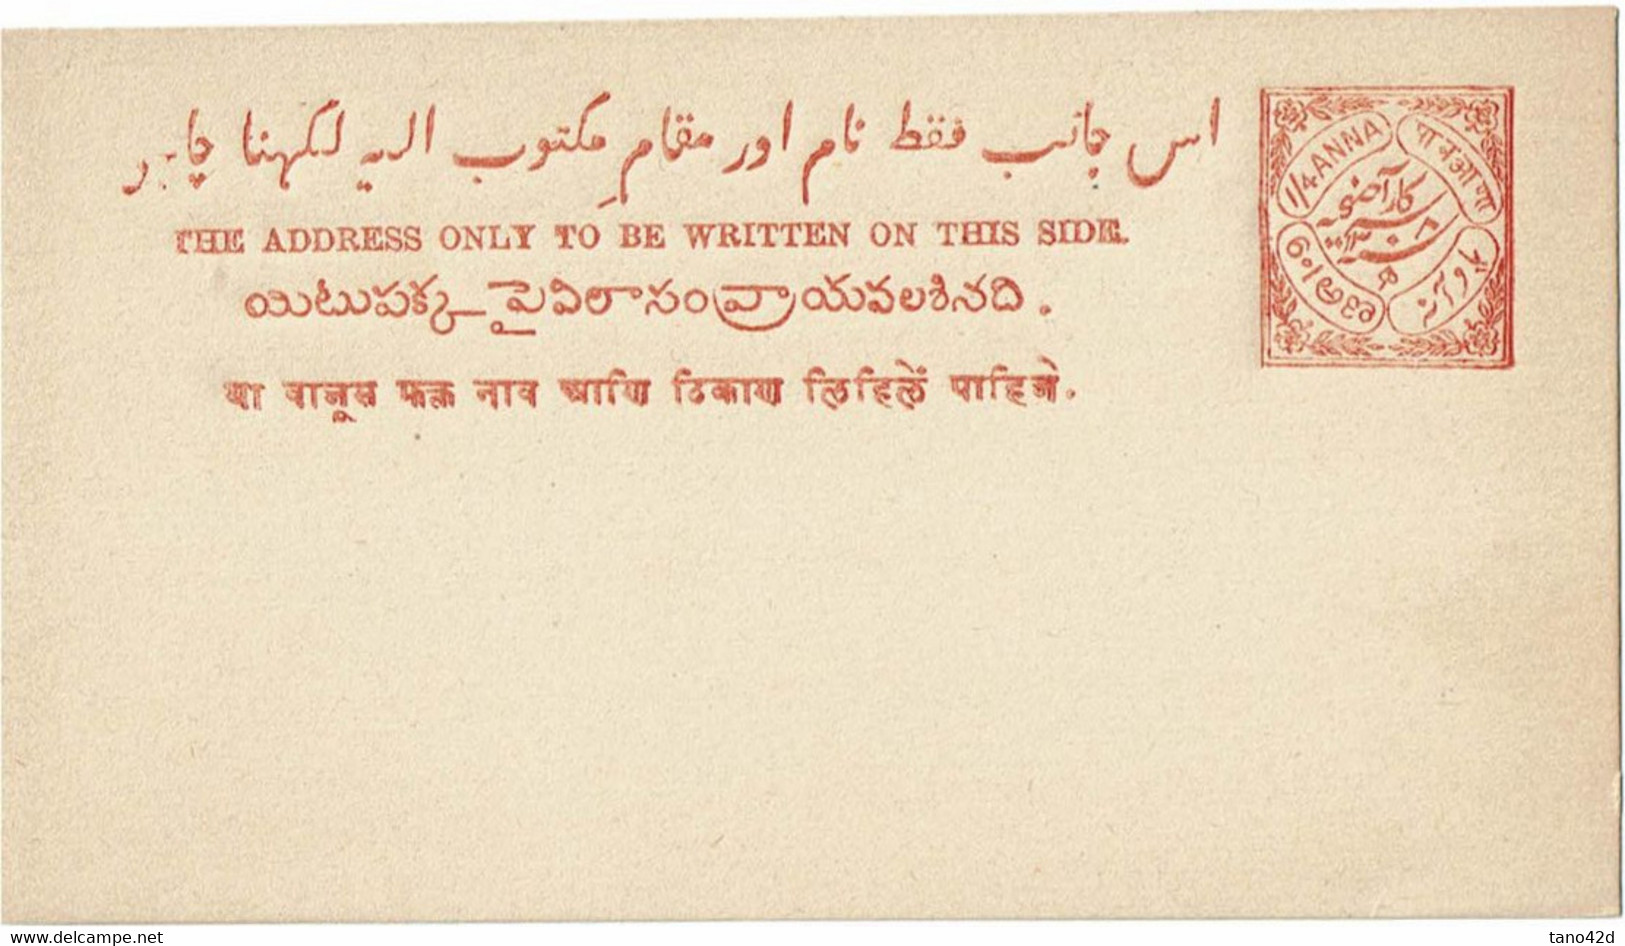 اس جانب فقط نام اور مقام مکتوب الیہ لکہنا چاہر
THE ADDRESS ONLY TO BE WRITTEN ON THIS SIDE.
యిటుపక్క పైవిలాసంవ్రాయవలశినది.
या बाजूस फक्त नाव आणि ठिकाण लिहिलें पाहिजे.
1/4 ANNA
पा व आ णा
پاو آنہ
www.delcampe.net
tano42d